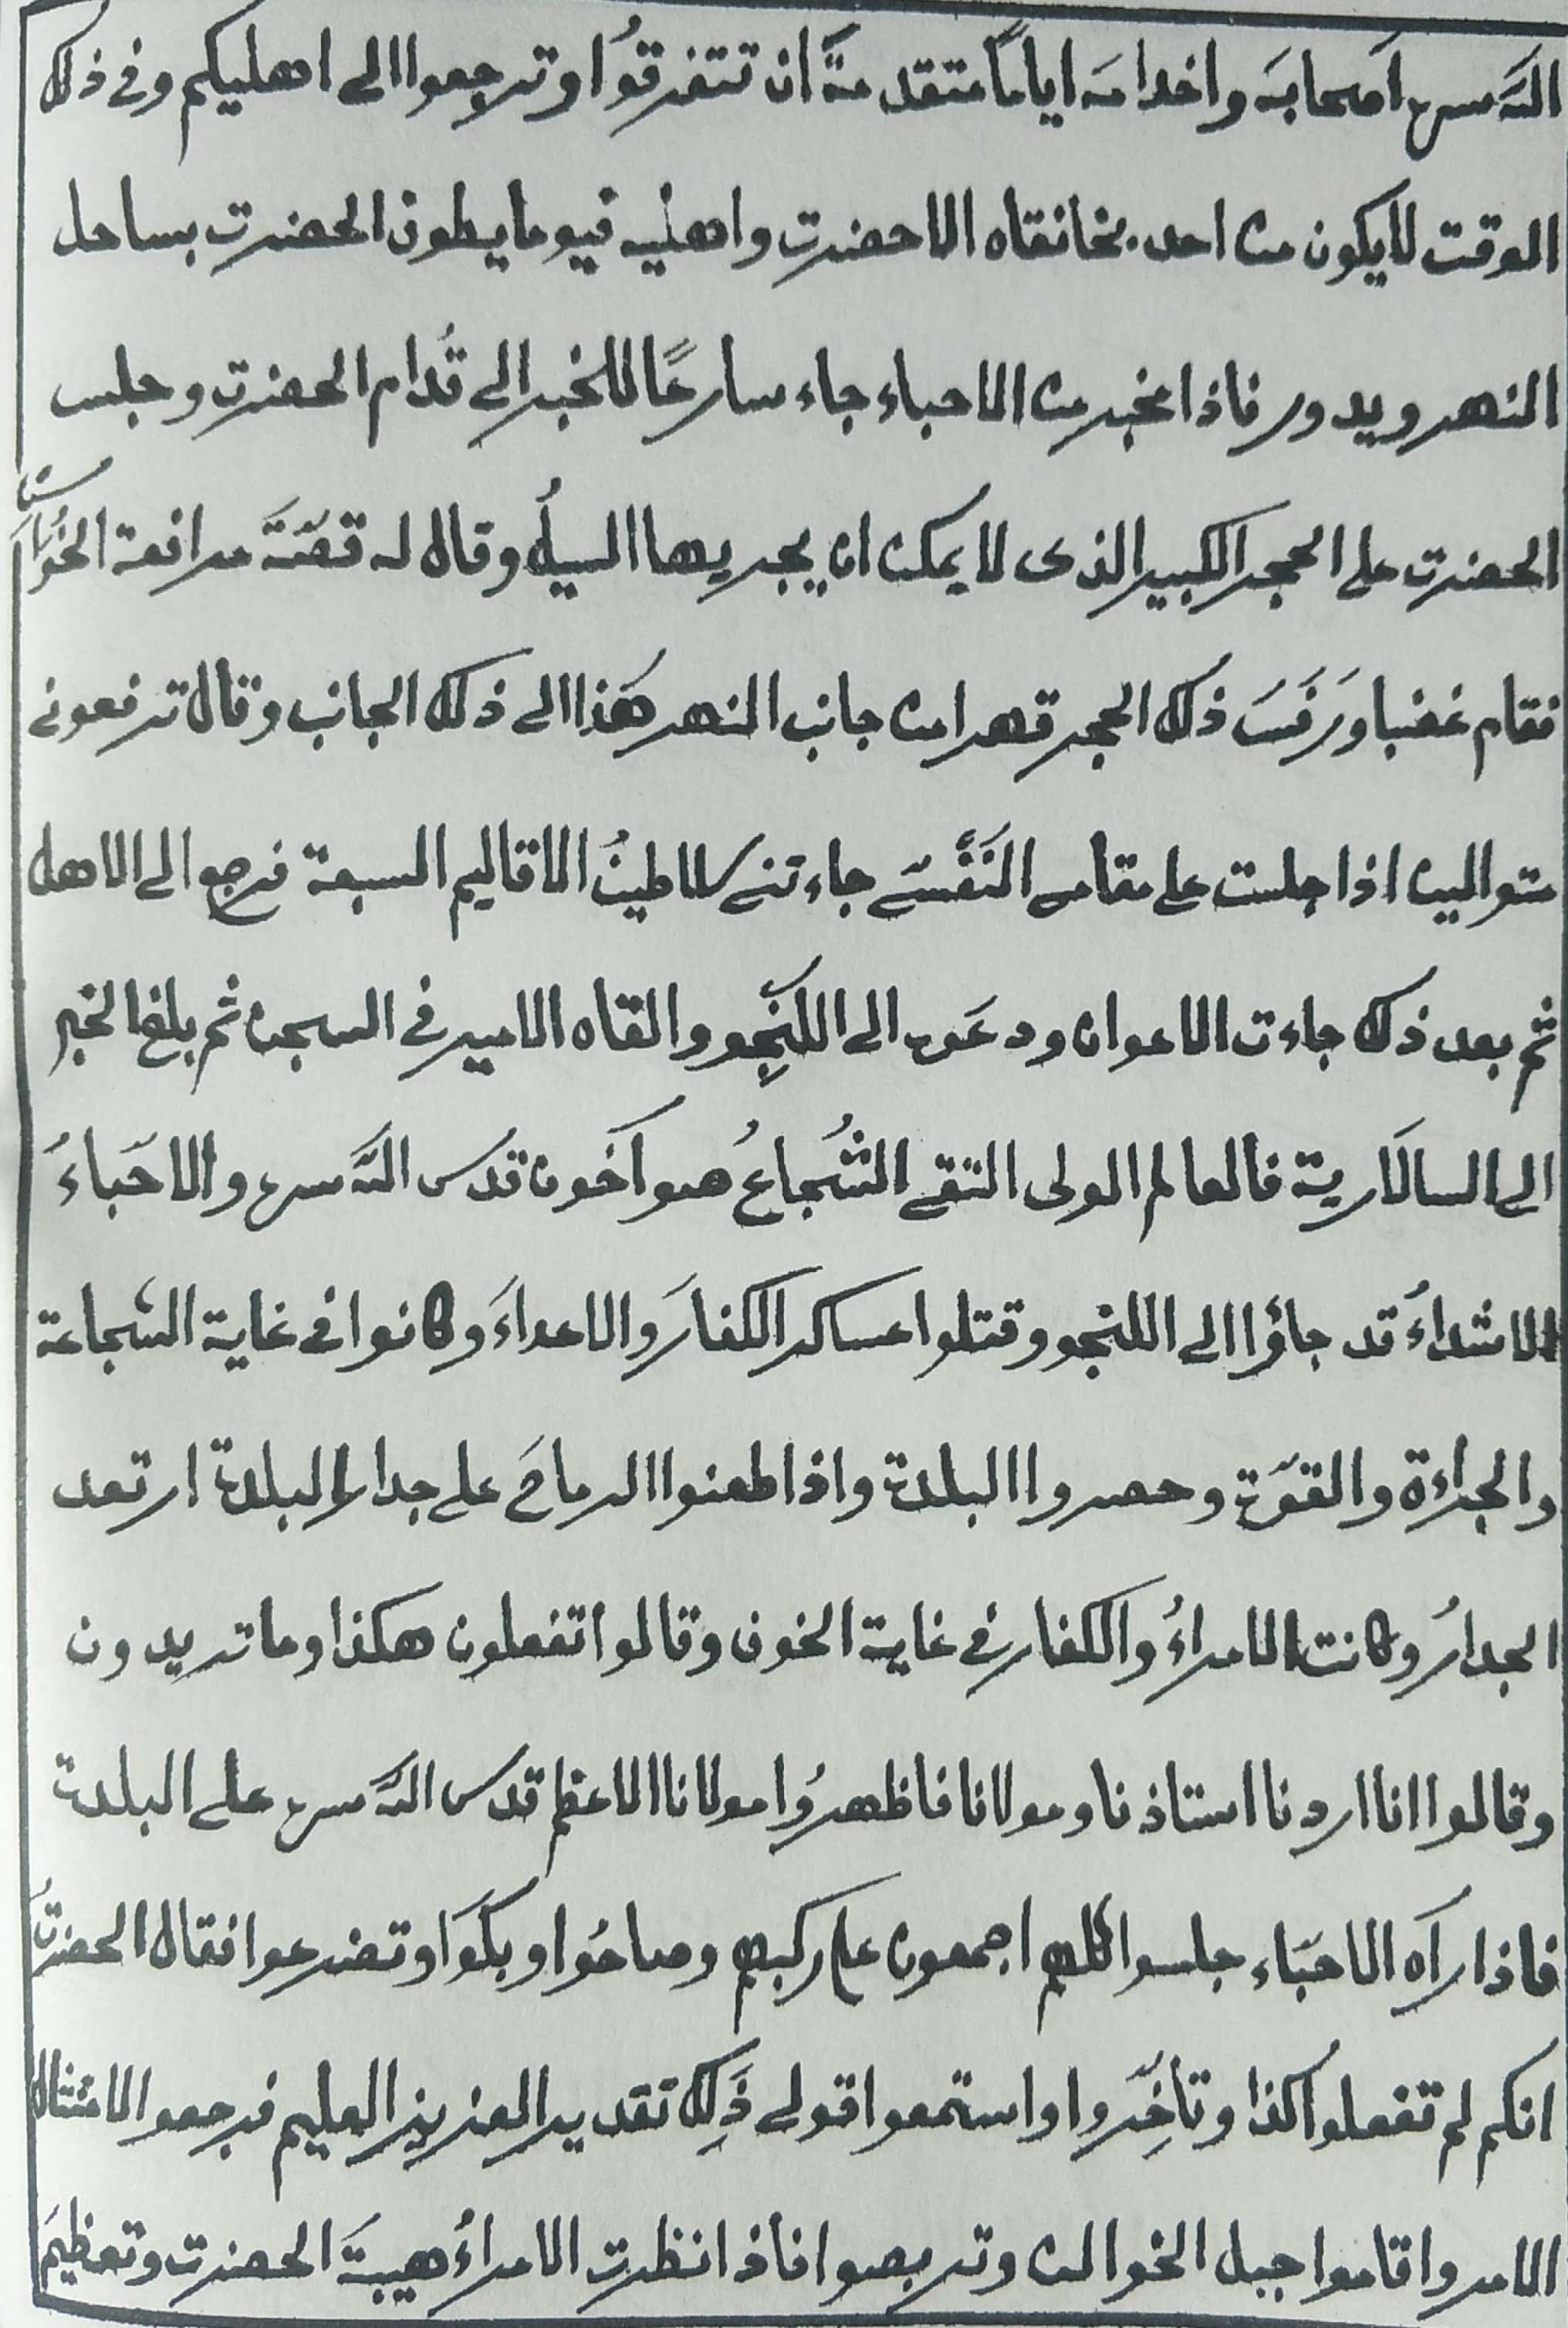 اللّٰه سره اَصحابَه واخدامَه اياماً متقدمةً ان تتفرقُوا وترجعوا الى اهليكم وفى ذلك
الوقت لايكون من احد بخانقاه الا حضرت واهليه فيوما يطوف الحضرت بساحل
النهر ويدور فاذا مخبر من الاحباء جاء سارعًا للخبر الى قُدام الحضرت وجلس
الحضرت على الحجر الكبير الذى لا يمكن ان يجريها السيلُ وقال له قصّةَ مرافعة الخُوَانين
فقام غضبا ورَفَسَ ذلك الحجر قهرا من جانب النهر هَذا الى ذلك الجانب وقال ترفعونى
متوالين اذا جلست على مقامى النَفْسّى جاءتنى سلاطينُ الاقاليم السبعة فرجع الى الاهل
ثم بعد ذلك جاءت الاعوان ودعَوه الى اللنجو والقاه الامير فى السجن ثم بلغ الخبر
الى السالَارية فالعالم الولى التقى الشُجاعُ هو آخون قدّس اللّٰه سره والاحَباءُ
الاشداءُ قد جاؤا الى اللنجو وقتلوا عساكر الكفارَ والاعداءَ وكانوا فى غاية الشجاعة
والجراءة والقوّة وحصروا البلدة واذا طعنوا الرماحَ على جدار البلدة ارتعد
الجدارُ وكانت الامراءُ والكفار فى غاية الخوف وقالوا تفعلون هكذا وما تريدون
وقالوا انا اردنا استاذنا ومولانا فاظهرُوا مولانا الاعظم قدّس اللّٰه سره على البلدة
فاذا رآه الاحَبّاء جلسوا كلهم اجمعون على ركبهم وصاحُوا وبكَوا وتضرعوا فقال الحضرتُ
انكم لم تفعلوا كذا وتأخِّروا واستمعوا قولى ذَلِك تقدير العزيز العليم فرجعوا لامتثال
الامر واقاموا جبل الخوالن وتربصوا فاذا نظرت الامراءُ هيبةَ الحضرت وتعظيمَ